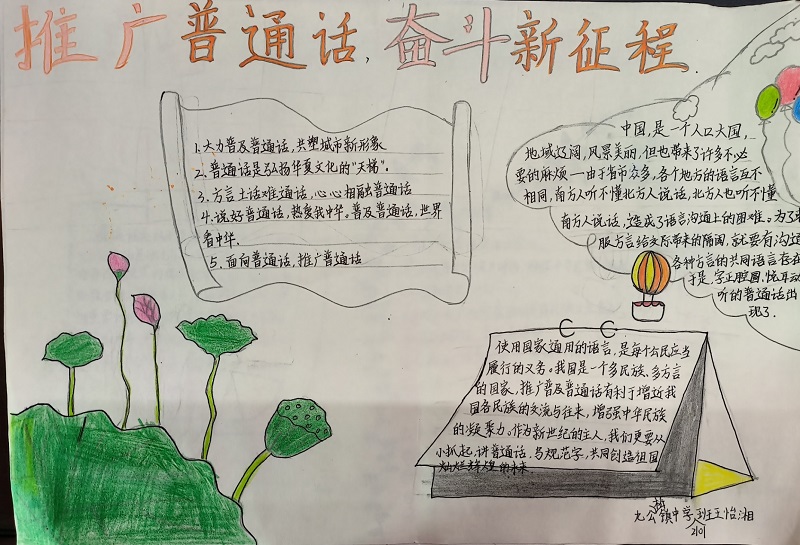 推广普通话,奋斗新征程.
1、大力普及普通话,共塑城市新形象
2、普通话是弘扬华夏文化的"天梯".
3、方言土话难通话,心心相融普通话
4、说好普通话,热爱我中华。普及普通话,世界
看中华.
5、面向普通话,推广普通话
中国,是一个人口大国,
地域辽阔,风景美丽,但也带来了许多不必
要的麻烦一由于省市众多,各个地方的语言互不
相同,南方人听不懂北方人说话,北方人也听不懂
南方人说话,造成了语言沟通上的困难。为了
服方言给交际带来的隔阂,就要有沟通
各种方言的共同语言存在
于是,字正腔圆,悦耳动
听的普通话出
现了.
使用国家通用的语言,是每个公民应当
履行的义务。我国是一个多民族、多方言
的国家,推广普及普通话有利于增近我
国各民族的交流与往来,增强中华民族
的凝聚力。作为新世纪的主人,我们更要从
小抓起,讲普通话,写规范字,共同创造祖国
灿烂辉煌的未来
镇中学 班王怡湘